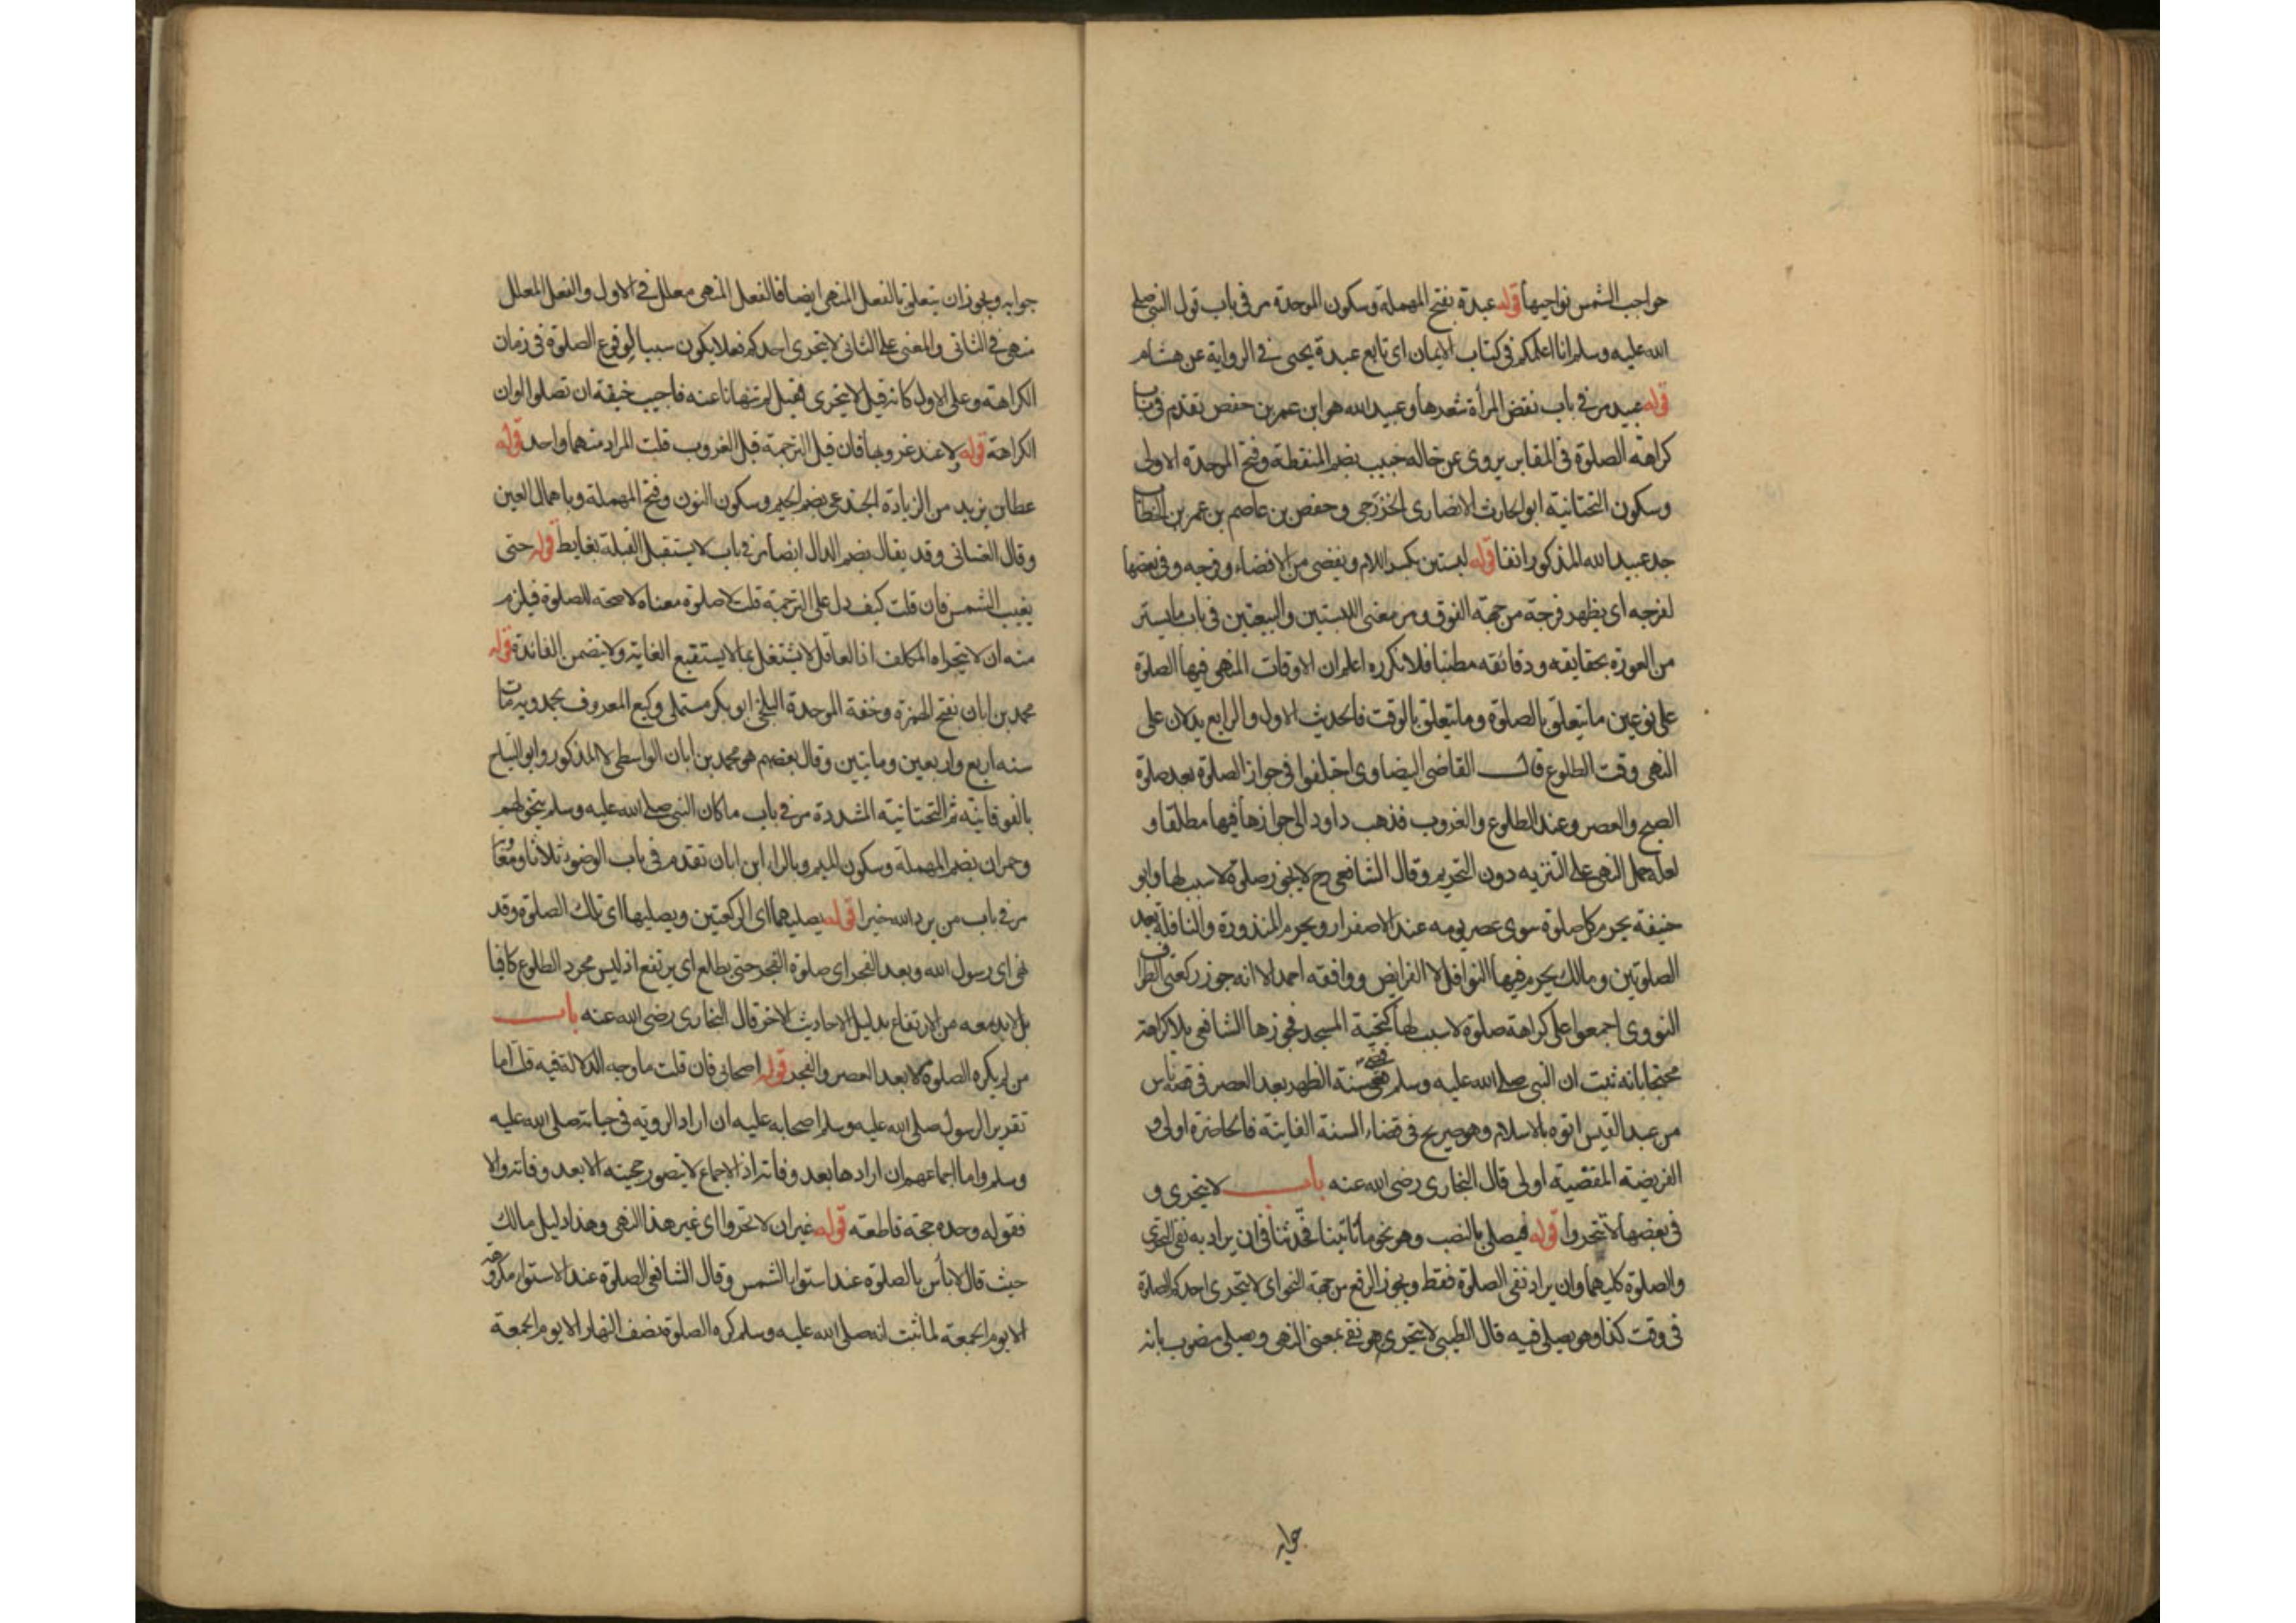 حواجب الشمس نواحيها قوله عبدة بفتح المهملة وسكون الموحدة مر في باب قول النبي صلى
الله عليه وسلم انا اعلمكم في كتاب الايمان اى تابع عبدة يحيى في الرواية عن هشام
قوله عبيد مر في باب نقض المرأة شعرها وعبيد الله هو ابن عمر بن حفص تقدم في باب
كراهة الصلوة في المقابر يروى عن خاله خبيب بضم المنقطة وفتح الموحدة الاولى
وسكون التحتانية ابو الحارث الانصارى الخزرجى وحفص بن عاصم بن عمر بن الخطاب
جد عبيد الله المذكور انفا قوله لبستين بكسر اللام ويفضى من الافضاء وفرجه وفى بعضها
لفرجه اى يظهر فرجه من جهة الفوق ومر معنى اللبستين والبيعتين في باب ما يستر
من العورة بحقايقه ودقائقه مطنبا فلا نكرره اعلم ان الاوقات المنهى فيها الصلوة
على نوعين ما يتعلق بالصلوة وما يتعلق بالوقت فالحديث الاول والرابع يدلان على
النهى وقت الطلوع قال القاضى البيضاوى اختلفوا في جواز الصلوة بعد صلوة
الصبح والعصر وعند الطلوع والغروب فذهب داود الى جوازها فيها مطلقا و
لعله حمل النهى على التنزيه دون التحريم وقال الشافعى رح لا يجوز صلوة لا سبب لها وابو
حنيفة يحرم كل صلوة سوى عصر يومه عند الاصفرار ويحرم المنذورة والنافلة بعد
الصلوتين ومالك يحرم فيها النوافل لا الفرايض ووافقه احمد الا انه جوز ركعتى الطواف
النووى اجمعوا على كراهة صلوة لا سبب لها كتحية المسجد فجوزها الشافعى بلا كراهة
محتجا بانه ثبت ان النبي صلى الله عليه وسلم قضى سنة الظهر بعد العصر في قصة ناس
من عبد القيس اتوه بالاسلام وهو صريح في قضاء السنة الفايتة فالحاضرة اولى و
الفريضة المقضية اولى قال البخارى رضى الله عنه باب لا يتحرى و
في بعضها لا تتحروا قوله فيصلى بالنصب وهو نحو ما تاتينا فتحدثنا في ان يراد به نفى التحرى
والصلوة كليهما وان يراد نفى الصلوة فقط ويجوز الرفع من جهة النحو اى لا يتحرى احدكم الصلوة
في وقت كذا وهو يصلى فيه قال الطيبى لا يتحرى هو نفى بمعنى النهى ويصلى منصوب بانه
جوابه
جوابه ويجوز ان يتعلق بالفعل المنهى ايضا فالفعل المنهى معلل في الاول والفعل المعلل
منهى في الثانى والمعنى على الثانى لا يتحرى احدكم فعلا يكون سببا لوقوع الصلوة في زمان
الكراهة وعلى الاول كانه قيل لا يتحرى فقيل لم تنهانا عنه فاجيب خيفة ان تصلوا اوان
الكراهة قوله ولا عند غروبها فان قيل الترجمة قبل الغروب قلت المراد منهما واحد قوله
عطا بن يزيد من الزيادة الجندعى بضم الجيم وسكون النون وفتح المهملة وباهمال العين
وقال الغسانى وقد يقال بضم الدال ايضا مر في باب لا يستقبل القبلة بغايط قوله حتى
يغيب الشمس فان قلت كيف دل على الترجمة قلت لا صلوة معناه لا صحة للصلوة فيلزم
منه ان لا يتحراه المكلف اذ العاقل لا يشتغل بما لا يستتبع الغاية ولا يتضمن الفائدة قوله
محمد بن ابان بفتح الهمزة وخفة الموحدة البلخى ابو بكر مستملى وكيع المعروف بحمدويه مات
سنه اربع واربعين ومايتين وقال بعضهم هو محمد بن ابان الواسطى لا المذكور وابو التياح
بالفوقانية ثم التحتانية المشددة مر في باب ما كان النبي صلى الله عليه وسلم يتخولهم
وحمران بضم المهملة وسكون الميم وبالراء ابن ابان تقدم في باب الوضوء ثلاثا ومعاوية
مر في باب من يرد الله خيرا قوله يصليهما اى الركعتين ويصليها اى تلك الصلوة وقد
نهى اى رسول الله وبعد الفجر اى صلوة الفجر حتى يطلع اى يرتفع اذ ليس مجرد الطلوع كافيا
بل لابد معه من الارتفاع بدليل الاحاديث الاخر قال البخارى رضى الله عنه باب
من لم يكره الصلوة الا بعد العصر والفجر قوله اصحابى فان قلت ما وجه الدلالة فيه قلت اما
تقرير الرسول صلى الله عليه وسلم اصحابه عليه ان اراد الروية في حياته صلى الله عليه
وسلم واما اجماعهم ان ارادها بعد وفاته اذ الاجماع لا يتصور حجيته الا بعد وفاته والا
فقوله وحده حجة قاطعة قوله غير ان لا تحروا اى غير هذا النهى وهذا دليل مالك
حيث قال لا بأس بالصلوة عند استواء الشمس وقال الشافعى الصلوة عند الاستواء مكروهة
الا يوم الجمعة لما ثبت انه صلى الله عليه وسلم كره الصلوة نصف النهار الا يوم الجمعة